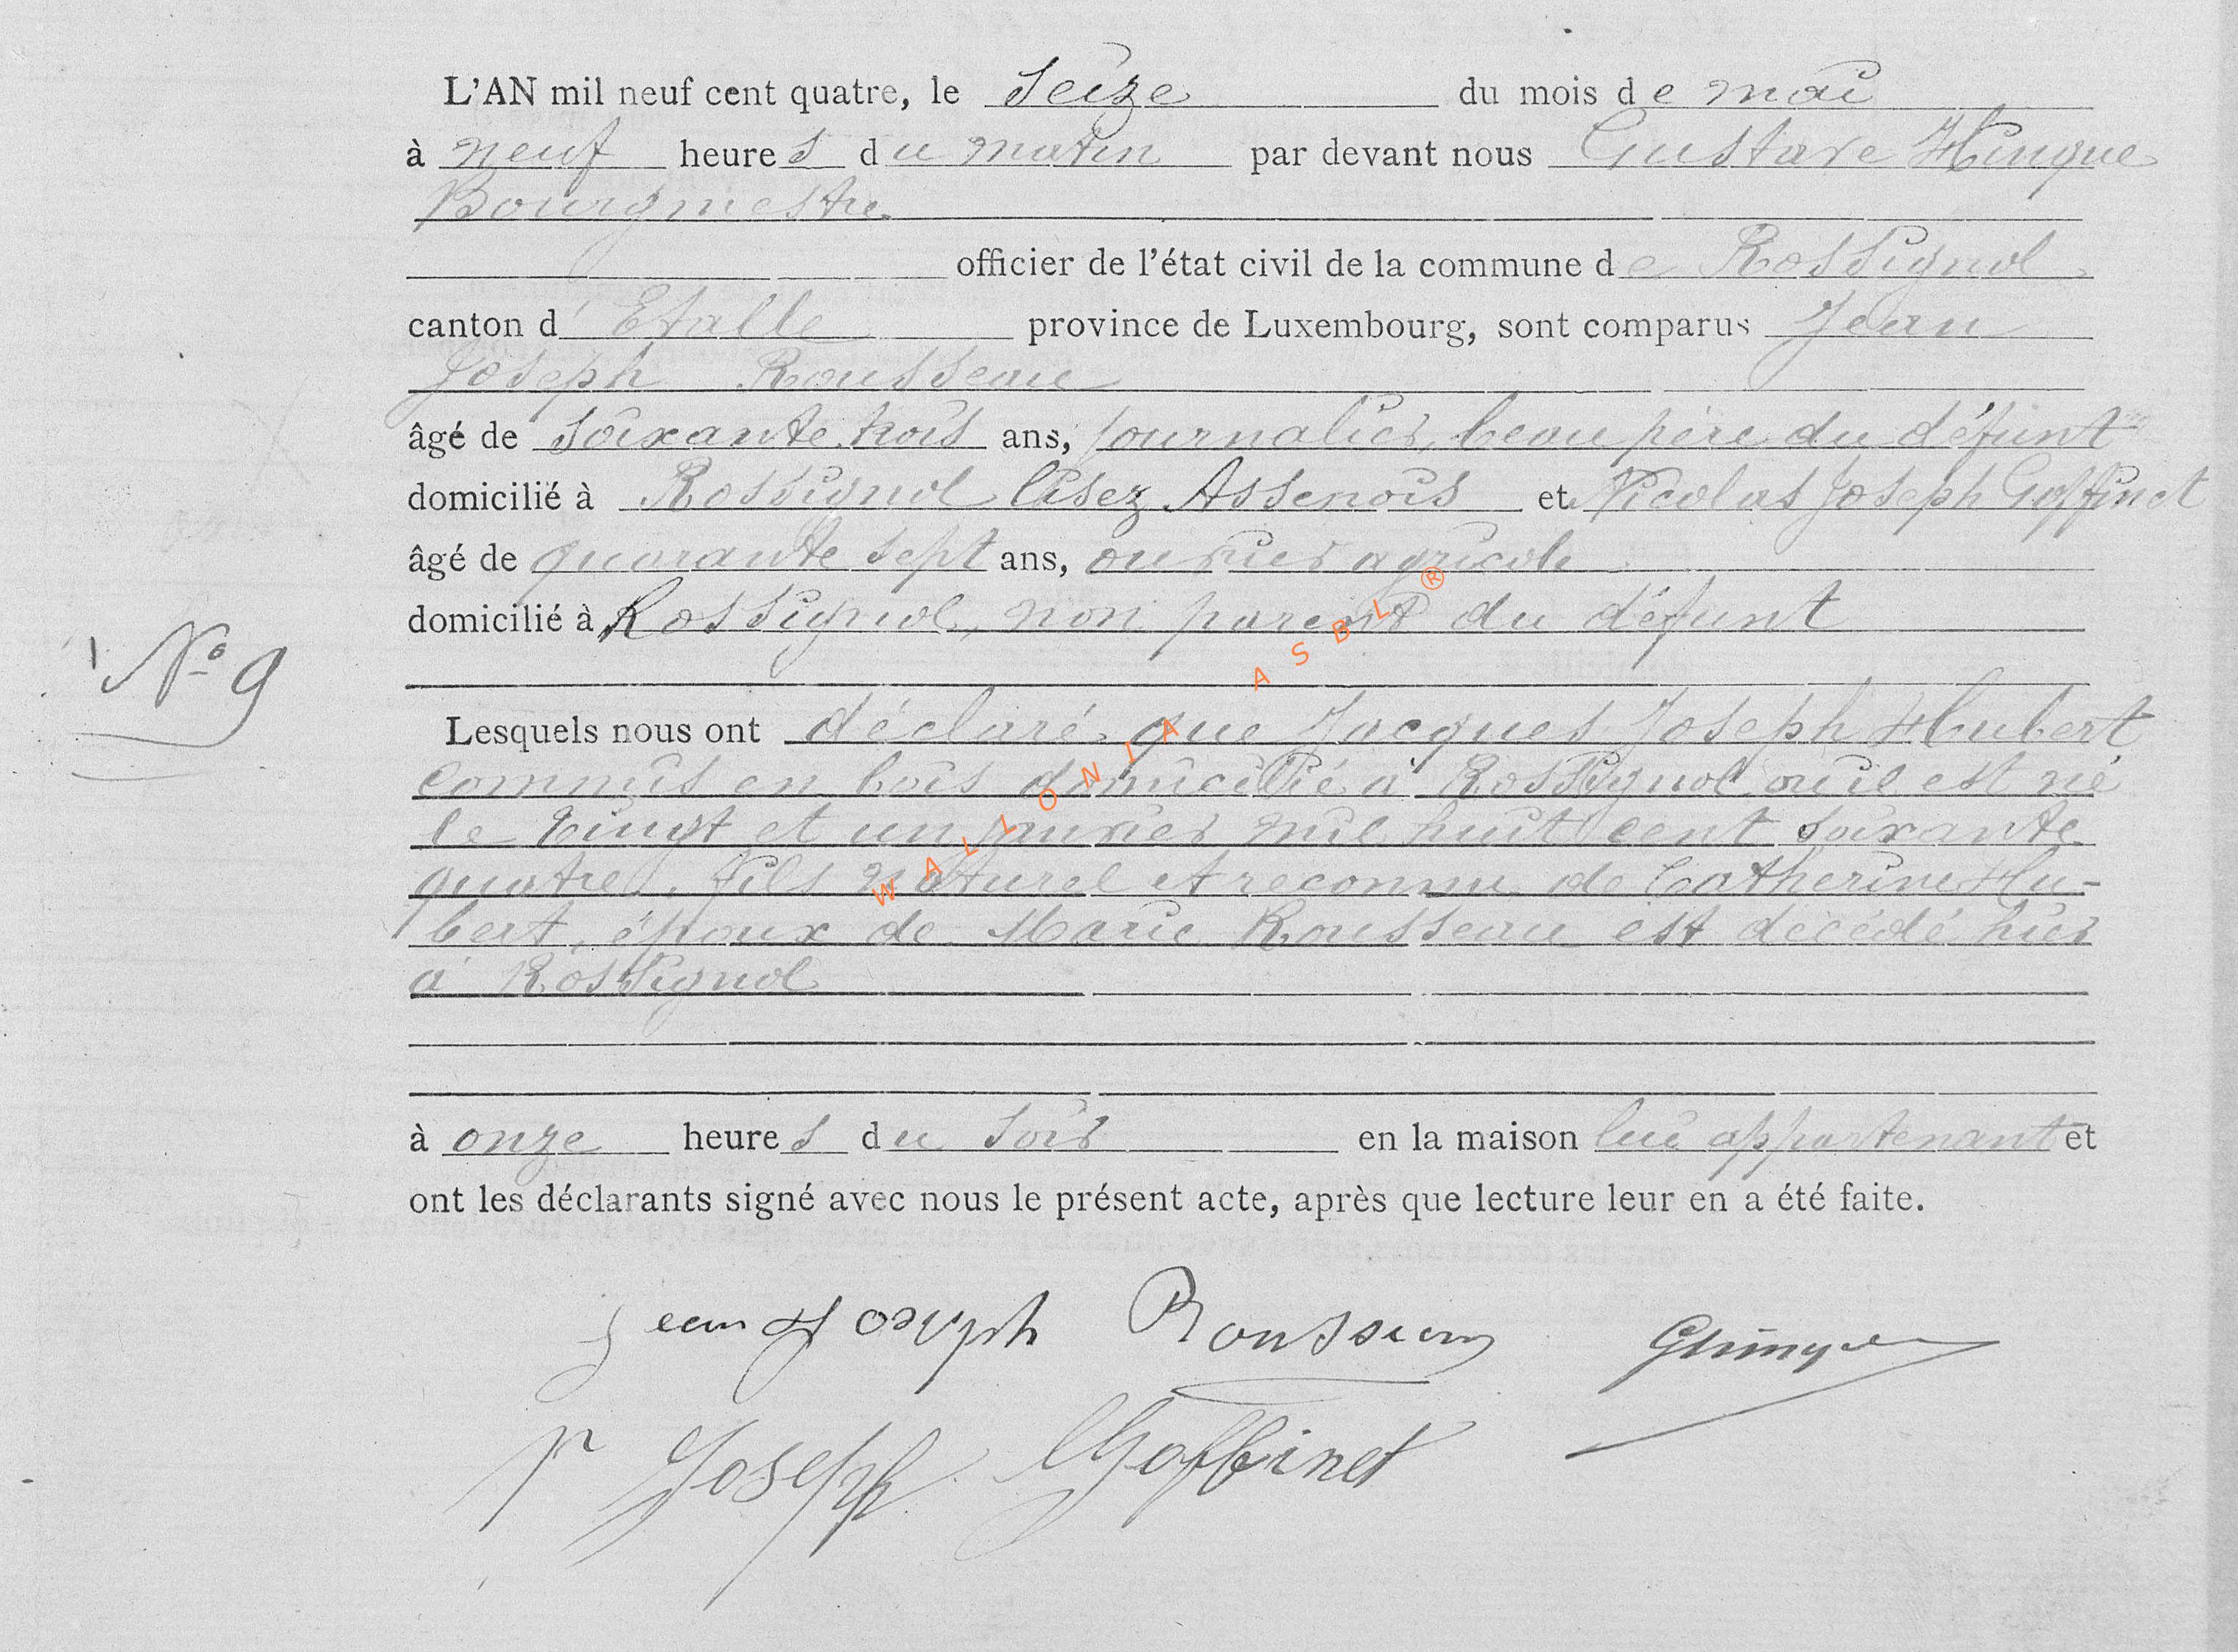 L'AN mil neuf cent quatre, le Seize du mois de mai
à neuf heures du matin par devant nous Gustave Hinque
Bourgmestre
officier de l'état civil de la commune de Rossignol
canton d' Etalle province de Luxembourg, sont comparus Jean
Joseph Rousseau
âgé de soixante trois ans, journalier, beau père du défunt
domicilié à Rossignol lisez Assenois et Nicolas Joseph Goffinet
âgé de quarante sept ans, ouvrier agricole
domicilié à Rossignol, non parent du défunt
N° 9
Lesquels nous ont déclaré que Jacques Joseph Hubert
commis en bois domicilié à Rossignol où il est né
le vingt et un janvier mil huit cent soixante
quatre, fils naturel et reconnu de Catherine Hu-
bert, époux de Marie Rousseau est décédé hier
à Rossignol
à onze heures du soir en la maison lui appartenant et
ont les déclarants signé avec nous le présent acte, après que lecture leur en a été faite.
Jean Joseph Rousseau GHinque
Joseph Goffinet
WALLONIA ASBL ®